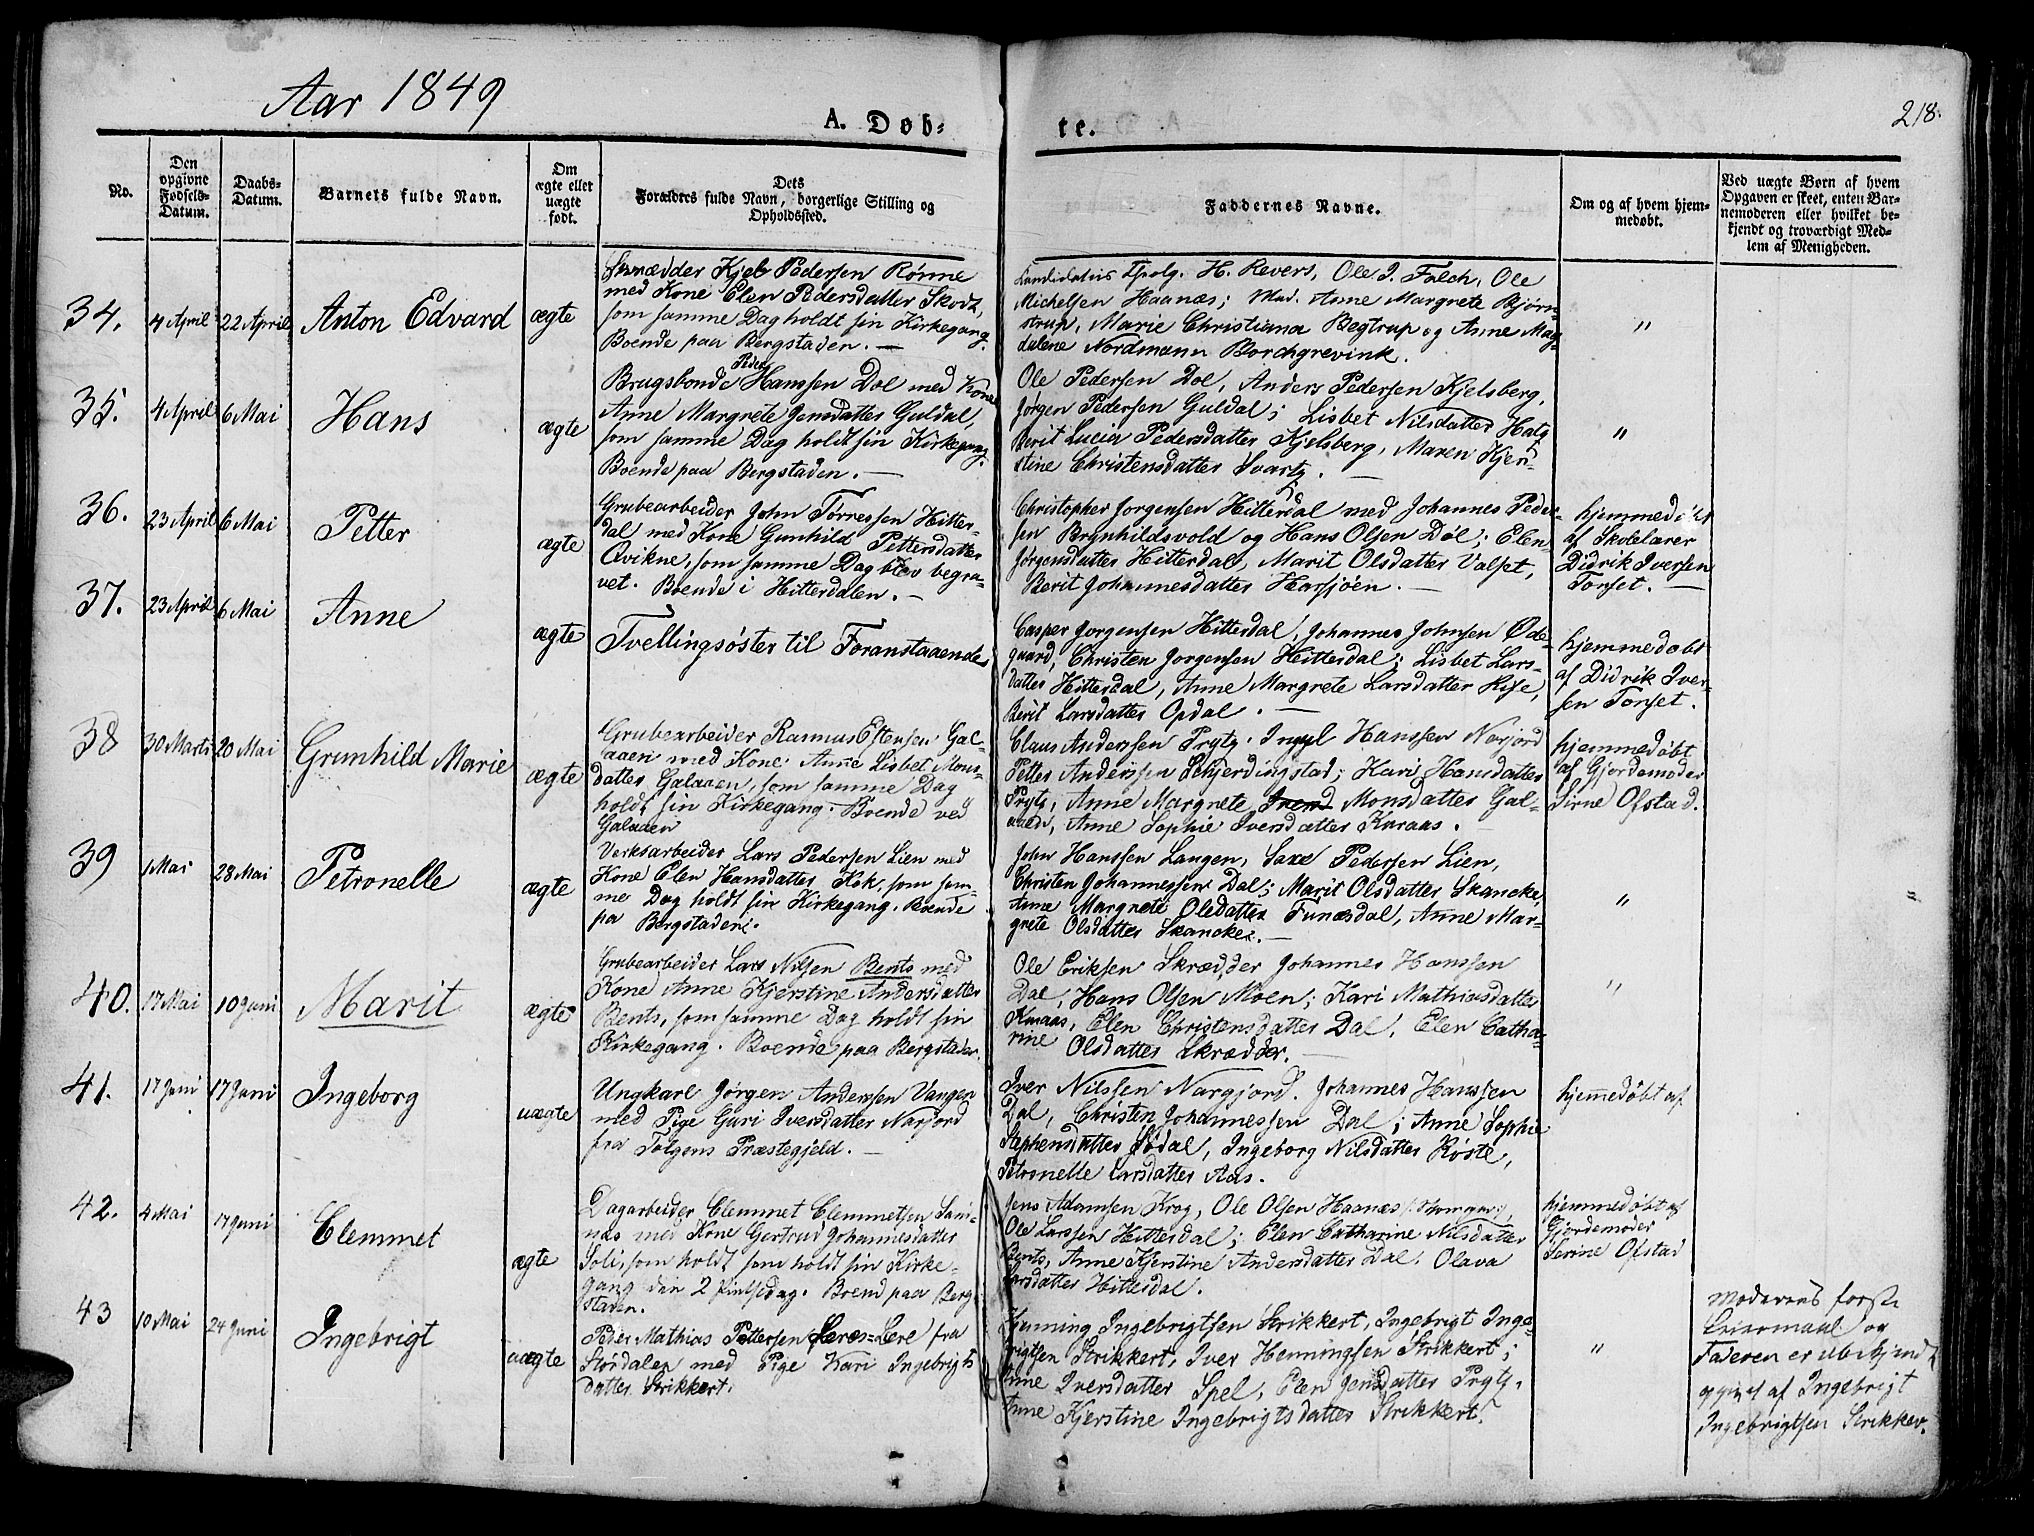 Aar 1849
A. Døb-
te.
218.
No.
Den opgivne Fødsels-Datum.
Daabs-Datum.
Barnets fulde Navn.
Om ægte eller uægte født.
Dets Forældres fulde Navn, borgerlige Stilling og Opholdssted.
Faddernes Navne.
Om og af hvem hjemmedøbt.
Ved uægte Børn af hvem Opgaven er skeet, enten Barnemoderen eller hvilket bekjendt og troværdigt Medlem af Menigheden.
34.
4 April
22 April
Anton Edvard
ægte
Skrædder Kjel Pedersen Rönne
med Kone Elen Pedersdatter Skodt,
som samme Dag holdt sin Kirkegang.
Boende paa Bergstaden. —
Candidatus H. Revers, Ole J. Falch, Ole
Michelsen Haanæs; Mad. Anne Margrete Bjørn-
strup, Marie Christiana Begtrup og Anne Mag-
dalene Nordmann Borchgrevink.
"
35.
4 April
6 Mai
Hans
ægte
Peder
Brugsbonde Hanssen Dol med Kone
Anne Margrete Jensdatter Guldal,
som samme Dag holdt sin Kirkegang.
Boende paa Bergstaden. —
Ole Pedersen Dol, Anders Pedersen Kjelsberg,
Jørgen Pedersen Guldal; Lisbet Nilsdatter
Berit Lucia Pedersdatter Kjelsberg, Maren Kjer-
stine Christensdatter Svartz. —
"
36.
23 April
6 Mai
Petter
ægte
Grubearbeider John Törressen Hitter-
dal med Kone Gunhild Pettersdatter
Qvikne, som samme Dag blev begra-
vet. Boende i Hitterdalen. —
Christopher Jorgensen Hitterdal med Johannes Peder-
sen Brynhildsvold og Hans Olsen Döl; Elen
Jørgensdatter Hitterdal, Marit Olsdatter Valset,
Berit Johannesdatter Harsjöen. —
hjemmedöbt
af Skolelærer
Didrik Iversen
Torset. —
37.
23 April
6 Mai
Anne
ægte
Tvellingsöster til Foranstaaende
Casper Jorgensen Hitterdal, Johannes Johnsen Öde-
gaard, Christen Jorgensen Hitterdal; Lisbet Lars-
datter Hitterdal, Anne Margrete Larsdatter Rise,
Berit Larsdatter Opdal. —
hjemmedobt
af Didrik Iver-
sen Torset.
38
30 Marts
20 Mai
Grunhild Marie
ægte
Grubearbeider Rasmus Estensen Gal-
aaen med Kone Anne Lisbet Mons-
datter Galaaen, som samme Dag
holdt sin Kirkegang. Boende ved
Galaaen
Claus Andersen Prytz. Ingel Hanssen Narjord
Petter Anderssen Schjerdingstad; Kari Hansdatter
Prytz, Anne Margrete Monsdatter Gal-
aaen, Anne Sophie Iversdatter Knraas.
hjemmedöbt
af Gjordemoder
Sirne Ofstad.
39
1 Mai
28 Mai
Petronelle
ægte
Verksarbeider Lars Pedersen Lien med
Kone Elen Hansdatter Kok, som sam-
me Dag holdt sin Kirkegang. Boende
pa Bergstaden.
John Hanssen Langen, Saxe Pedersen Lien,
Christen Johannessen Dal; Marit Olsdatter Skancke,
Anne Margrete Olsdatter Funæsdal, Anne Mar-
grete Olsdatter Skancke. —
"
40.
17 Mai
10 Juni
Marit
ægte
Grubearbeider Lars Nilsen Bents med
Kone Anne Kjerstine Andersdatter
Bents, som samme Dag holdt sin
Kirkegang. Boende paa Bergstaden.
Ole Eriksen Skrædder Johannes Hanssen
Dal, Hans Olsen Moen; Kari Mathiasdatter
Knraas, Elen Christensdatter Dal, Elen Catha-
rine Olsdatter Skrædder. —
"
41.
17 Juni
17 Juni
Ingeborg
uægte
Ungkarl Jørgen Anderssen Vangen
med Pige Guri Iversdatter Narjord
fra Tolgens Præstegjeld. —
Iver Nilssen Nargjord. Johannes Hanssen
Dal, Christen Johannessen Dal; Anne Sophie
Stephensdatter Södal, Ingeborg Nilsdatter Röste,
Petronelle Larsdatter Aas.
hjemmedöbt af
42.
4 Mai
17 Juni
Clemmet
ægte
Dagarbeider Clemmet Clemmetsen Sand-
næs med Kone Gertrud Johannesdatter
Soli, som holdt som holdt sin Kirke-
gang den 2 Pintsedag. Boend paa Berg-
staden.
Jens Adamsen Krog, Ole Olsen Haanæs
Ole Larssen Hitterdal; Elen Catharine Nilsdatter
Bents, Anne Kjerstine Andersdatter Dal. Olava
Larsdatter Hitterdal.
hjemmedöbt af
Gjordemoder
Serine Ofstad
43
10 Mai
24 Juni
Ingebrigt
uægte
Peder Mathias Pettersen Leere fra
Stördalen med Pige Kari Ingebrigts
datter Strikkert.
Henning Ingebrigtsen Strikkert, Ingebrigt Inge-
brigtsen Strikkert, Iver Henningsen Strikkert;
Anne Iversdatter Spel, Elen Jensdatter Prytz,
Anne Kjerstine Ingebrigtsdatter Strikkert.
"
Moderens forste
Leiermaal og
Faderen er ubekjendt
opgivet af Ingebrigt
Ingebrigtsen Strikker.